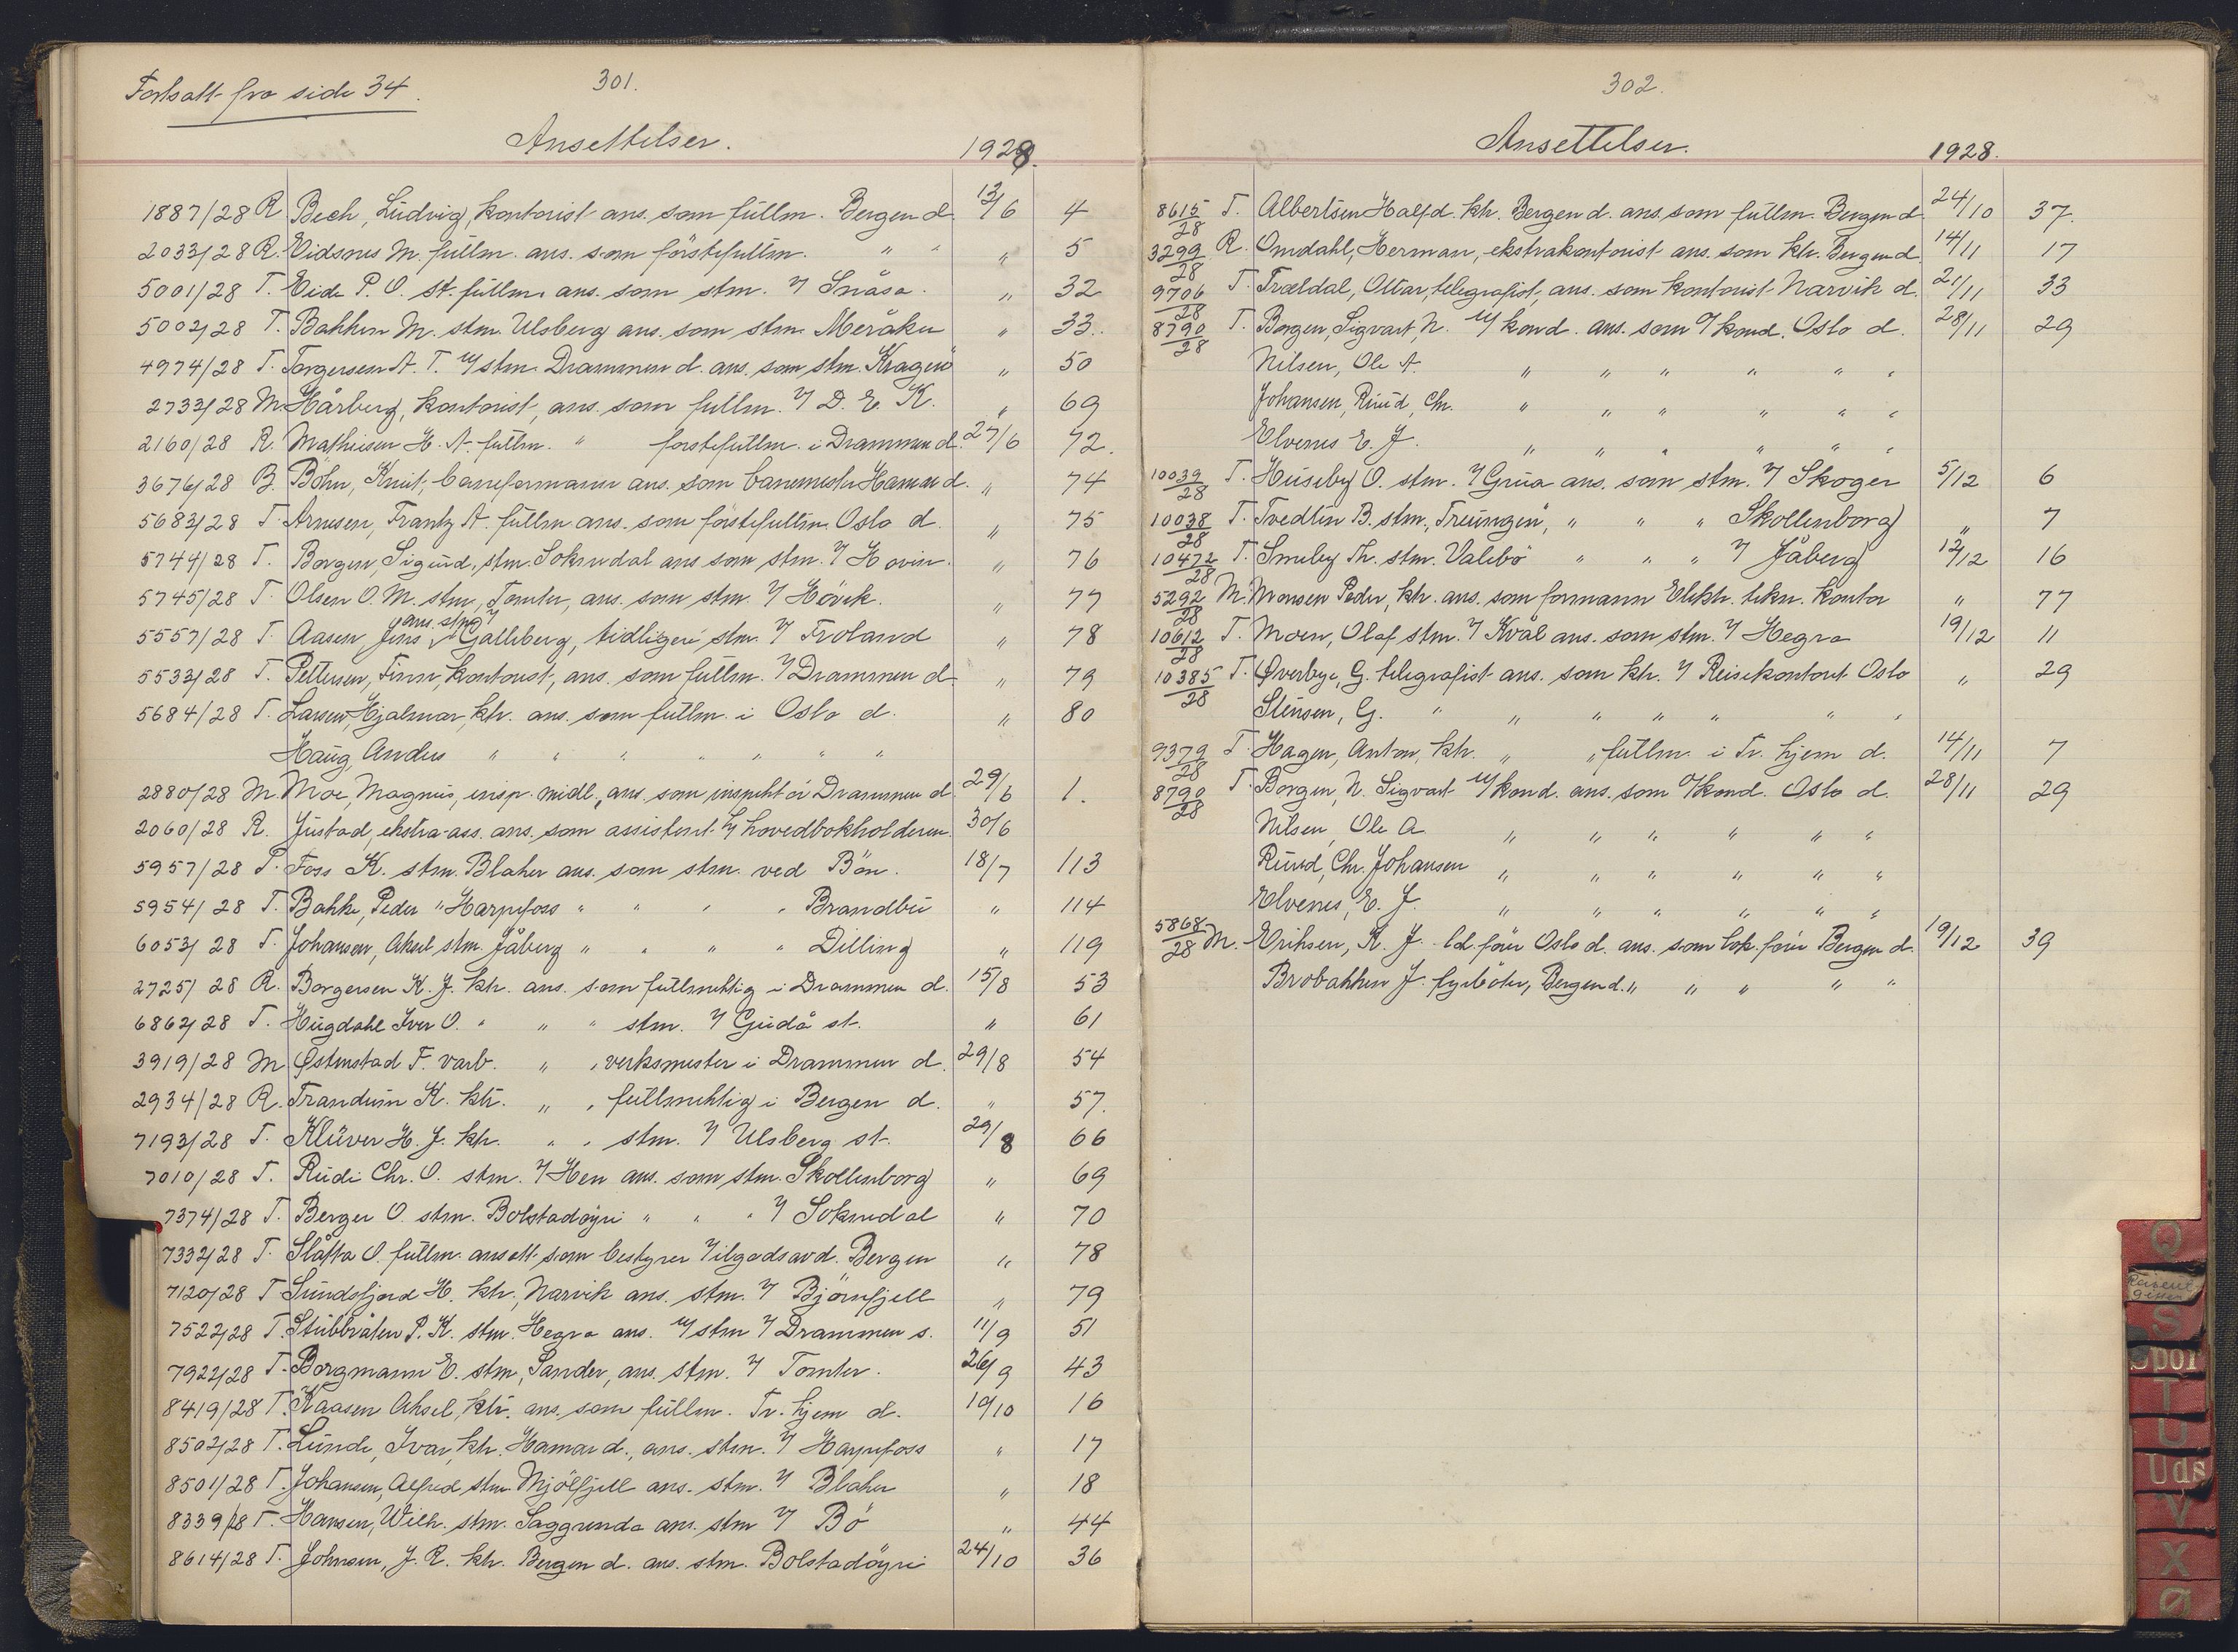 Fortsatt fra side 34.
301.
Ansettelser. 1928.
1887/28 R. Bech, Ludvig, kontorist ans. som fullm. Bergen d. 13/6 4
2033/28 R. Eidsnes M. fullm. ans. som förstefullm. " " " 5
5001/28 T. Eide P. O. st. fullm. ans. som stm. v/ Snåsa. " 32
5002/28 T. Bakken M. stm. Ulsberg ans. som stm. Meråker " 33.
4974/28 T. Torgersen A. T. u/stm. Drammen d. ans. som stm. Kragerö " 50
2733/28 M. Hårberg, kontorist, ans. som fullm. v/ D. E. K. " 69
2160/28 R. Mathiesen H. A. fullm. " förstefullm. i Drammen d. 27/6 72.
3676/28 B. Böhn, Knut, baneformann ans. som banemester Hamar d. " 74
5683/28 T. Arnesen, Frantz A. fullm ans. som förstefullm. Oslo d. " 75
5744/28 T. Borgen, Sigurd, stm. Soknedal ans som stm. v/ Hovin. " 76
5745/28 T. Olsen O. M. stm, Tomter, ans. som stm. v/ Hövik. " 77
5557/28 T. Aasen Jens ans. stm. v/ Galleberg, tidligere stm. v/ Froland " 78
5533/28 T. Pettersen, Finn, kontorist, ans. som fullm. v/ Drammen d. " 79
5684/28 T. Larsen, Hjalmar, ktr. ans. som fullm. i Oslo d. " 80
Haug, Anders " " " " " " "
2880/28 M. Moe, Magnus, insp. midl., ans. som inspektör Drammen d. 29/6 1.
2060/28 R. Justad, ekstra-ass. ans. som assistent h/ hovedbokholderen. 30/6
5957/28 T. Foss K. stm. Blaker ans. som stm. ved Bön. 18/7 113
5954/28 T. Bakke, Peder " Harpefoss " " " " Brandbu " 114
6053/28 T. Johansen, Aksel stm. Jåberg " " " " Dilling " 119
2725/28 R. Borgersen K. J. ktr. ans. som fullmektig i Drammen d. 15/8 53
6862/28 T. Hugdahl Iver O. " " " stm. v/ Gudå st. " 61
3919/28 M Østenstad F. varb. " " verksmester i Drammen d. 29/8 54
2934/28 R. Trandum K. ktr. " " fullmektig i Bergen d. " 57.
7193/28 T. Klüver H. J. ktr. " " stm. v/ Ulsberg st. 29/8 66
7010/28 T. Rudi Chr. O. stm. v/ Hen ans. som stm. Skollenborg " 69
7374/28 T. Berger O. stm. Bolstadöyri " " " v/ Soknedal " 70
7332/28 T. Slåtta O. fullm. ansatt som bestyrer v/ ilgodsavd. Bergen " 78
7120/28 T Sundsfjord H. ktr., Narvik ans. stm. v/ Björnfjell " 79
7522/28 T. Stubbråten P. K. stm. Hegra ans. u/stm v/ Drammen s. 11/9 51
7922/28 T. Borgmann E. stm, Sander, ans. stm. v/ Tomter. 26/9 43
8419/28 T. Kaasen Aksel, ktr. ans. som fullm. Tr. hjem d. 10/10 16
8502/28 T. Lunde, Ivar, ktr. Hamar d., ans. stm. v/ Harpefoss " 17
8501/28 T. Johansen, Alfred stm Mjölfjell ans. stm. v/ Blaker " 18
8339/28 T. Hansen, Wilh. stm. Saggrenda ans. stm v/ Bö " 44
8614/28 T. Johnsen, J. R. ktr. Bergen d. ans. stm. Bolstadöyri 24/10 36
302.
Ansettelser. 1928.
8615/28 T. Albertsen Halfd. ktr. Bergen d. ans. som fullm. Bergen d. 24/10 37.
3299/28 R. Omdahl, Herman, ekstrakontorist ans. som ktr. Bergen d. 14/11 17
9706/28 T. Trældal, Ottar, telegrafist, ans. som kontorist Narvik d. 21/11 33
8790/28 T. Borgen, Sigvart, N. u/kond. ans. som o/kond. Oslo d. 28/11 29
Nilsen, Ole A. " " " " " "
Johansen, Ruud, Chr. " " " " " "
Elvenes E. J. " " " " " "
10039/28 T. Huseby O. stm. v/ Grua ans. som stm. v/ Skoger 5/12 6
10038/28 T. Tvedten B. stm., Treungen, " " " Skollenborg " 7
10472/28 T. Smeby Th. stm. Valebö " " " v/ Jåberg 12/12 16
5292/28 M. Monsen Peder, ktr. ans. som formann Elektr. tekn. kontor " 77
10612/28 T. Moen, Olaf stm. v/ Kvål ans. som stm. v/ Hegra 19/12 11
10385/28 T. Øverbye, G. telegrafist ans. som ktr. v/ Reisekontoret Oslo " 29
Stensen, G. " " " " " " "
9379/28 T. Hagen, Anton, ktr. " " fullm. i Tr. hjem d. 14/11 7
8790/28 T. Borgen, N. Sigvart u/kond. ans. som o/kond. Oslo d. 28/11 29
Nilsen, Ole A. " " " " " "
Ruud, Chr. Johansen " " " " " "
Elvenes, E. J. " " " " " "
5868/28 M. Eriksen, K. J. ld. för Oslo d. ans. som lok. för. Bergen d. 19/12 39
Brobakken J. fyrböter, Bergen d. " " " " "
Q
S
Spor
T
U
Uds
V
X
Ø